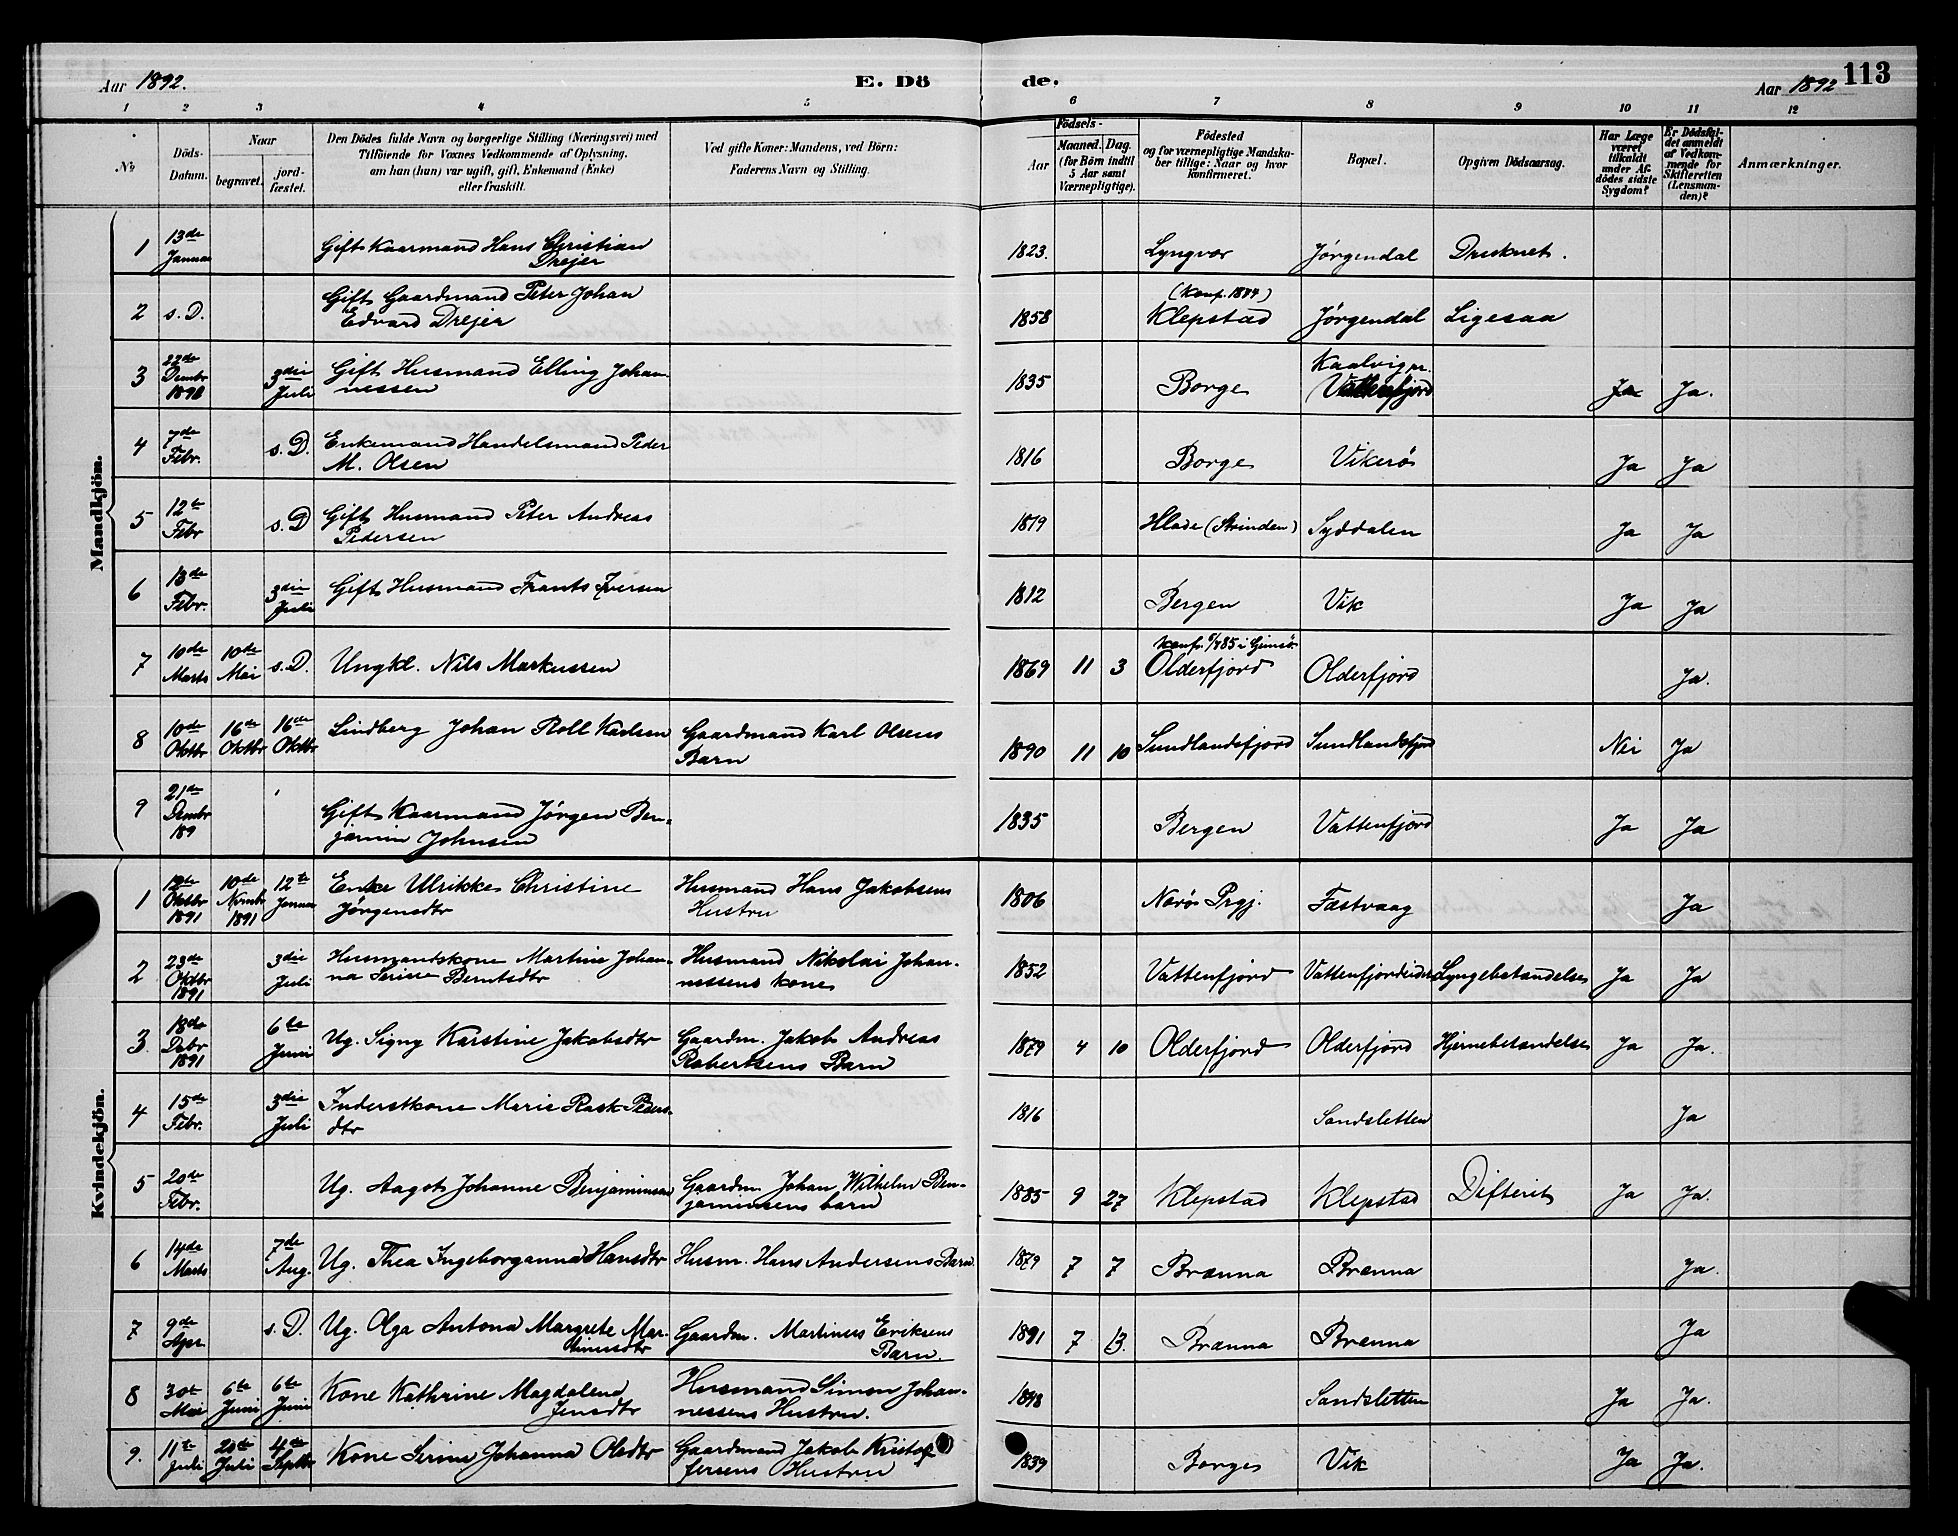 Aar 1892. E. Dö de. Aar 1892 113
1 2 3 4 5 6 7 8 9 10 11 12
No Döds-Datum. Naar begravet. jord-fæstet. Den Dödes fulde Navn og borgerlige Stilling (Næringsvei) med Tilföiende for Voxnes Vedkommende af Oplysning, om han (hun) var ugift, gift, Enkemand (Enke) eller fraskilt. Ved gifte Koner: Mandens, ved Börn: Faderens Navn og Stilling. Födsels- Aar Maaned. Dag. (for Börn indtil 5 Aar samt Værnepligtige). Födested og for værnepligtige Mandska-ber tillige: Naar og hvor konfirmeret. Bopæl. Opgiven Dödsaarsag. Har Læge været tilkaldt under Af-dödes sidste Sygdom? Er Dödsfal-det anmeldt af Vedkom-mende for Skifteretten (Lensman-den)? Anmærkninger.
Mandkjön.
1 13de Januar Gift Kaarmand Hans Christian Drejer 1823. Lyngvær Jørgendal Druknet.
2 s. D. Gift Gaardmand Peter Johan Edvard Drejer 1858 (Konf. 1874) Klepstad Jørgendal Ligesaa
3 22de Dembr 3die Juli Gift Husmand Elling Johan-nessen 1835 Borge Kaalvig pr. Vattenfjord Ja Ja.
4 7de Febr. s. D. Enkemand Handelsmand Peder M. Olsen 1816 Borge Vikerø Ja Ja
5 12te Febr s. D Gift Husmand Peter Andreas Pedersen 1819 Hlade (Strinden) Syddalen Ja Ja
6 13de Febr. 3die Juli Gift Husmand Frants Iversen 1812 Bergen Vik Ja Ja
7 10de Marts 10de Mai s. D. Ungkl. Nils Markussen 1869 11 3 Olderfjord Olderfjord Ja.
8 10de Oktbr 16de Oktbr 16de Oktbr Lindberg Johan Roll Karlsen Gaardmand Karl Olsens Barn 1890 11 10 Sundlandsfjord Sundlandsfjord Nei Ja
9 21de Dembr 189 Gift Kaarmand Jørgen Ben-jamin Johnsen 1835 Bergen Vattenfjord Ja Ja
Kvindekjön.
1 12te Oktbr 1891 10de Novmbr 1891 12te Januar Enke Ulrikke Christine Jørgensdtr Husmand Hans Jakobsens Hustru 1806 Nærø Prgj. Fæstvaag Ja
2 23de Oktbr 1891 3die Juli Husmandskone Martine Johan-na Serine Berntsdtr Husmand Nikolai Johan-nessens kone 1852 Vattenfjord Vattenfjordeidet Lyngebetændelse Ja Ja
3. 18de Debr 1891 6te Juni Ug. Signy Karstine Jakobsdtr Gaardm. Jakob Andreas Robertsens Barn 1879 4 10 Olderfjord Olderfjord Hjernebetændelse Ja Ja.
4 15de Febr. 3die Juli Inderstkone Marie Rask Peders-dtr 1816 Sandsletten Ja
5 20de Febr. Ug. Aagot Johanne Benjaminsen Gaardm. Johan Wilhelm Ben-jaminsens barn 1885 9 27 Klepstad Klepstad Difterit Ja Ja.
6 14de Marts 7de Aug. Ug. Thea Ingeborganna Hansdtr Husm. Hans Andersens Barn 1879 7 7 Brænna Brænna Ja.
7 9de Apr s. D. Ug. Olga Antona Margrete Mar-tinusdtr Gaardm. Martinus Eriksens Barn. 1891 7 13. Brænna Brænna Ja
8 30te Mai 6te Juni 6te Juni Kone Kathrine Magdalena Jensdtr Husmand Simon Johan-nessens Hustru. 1848 Sandsletten Ja Ja.
9. 11te Juli 20de Juli 4de Septbr Kone Serine Johanna Olsdtr Gaardmand Jakob Kristof-fersens Hustru 1839 Borge Vik Ja Ja.